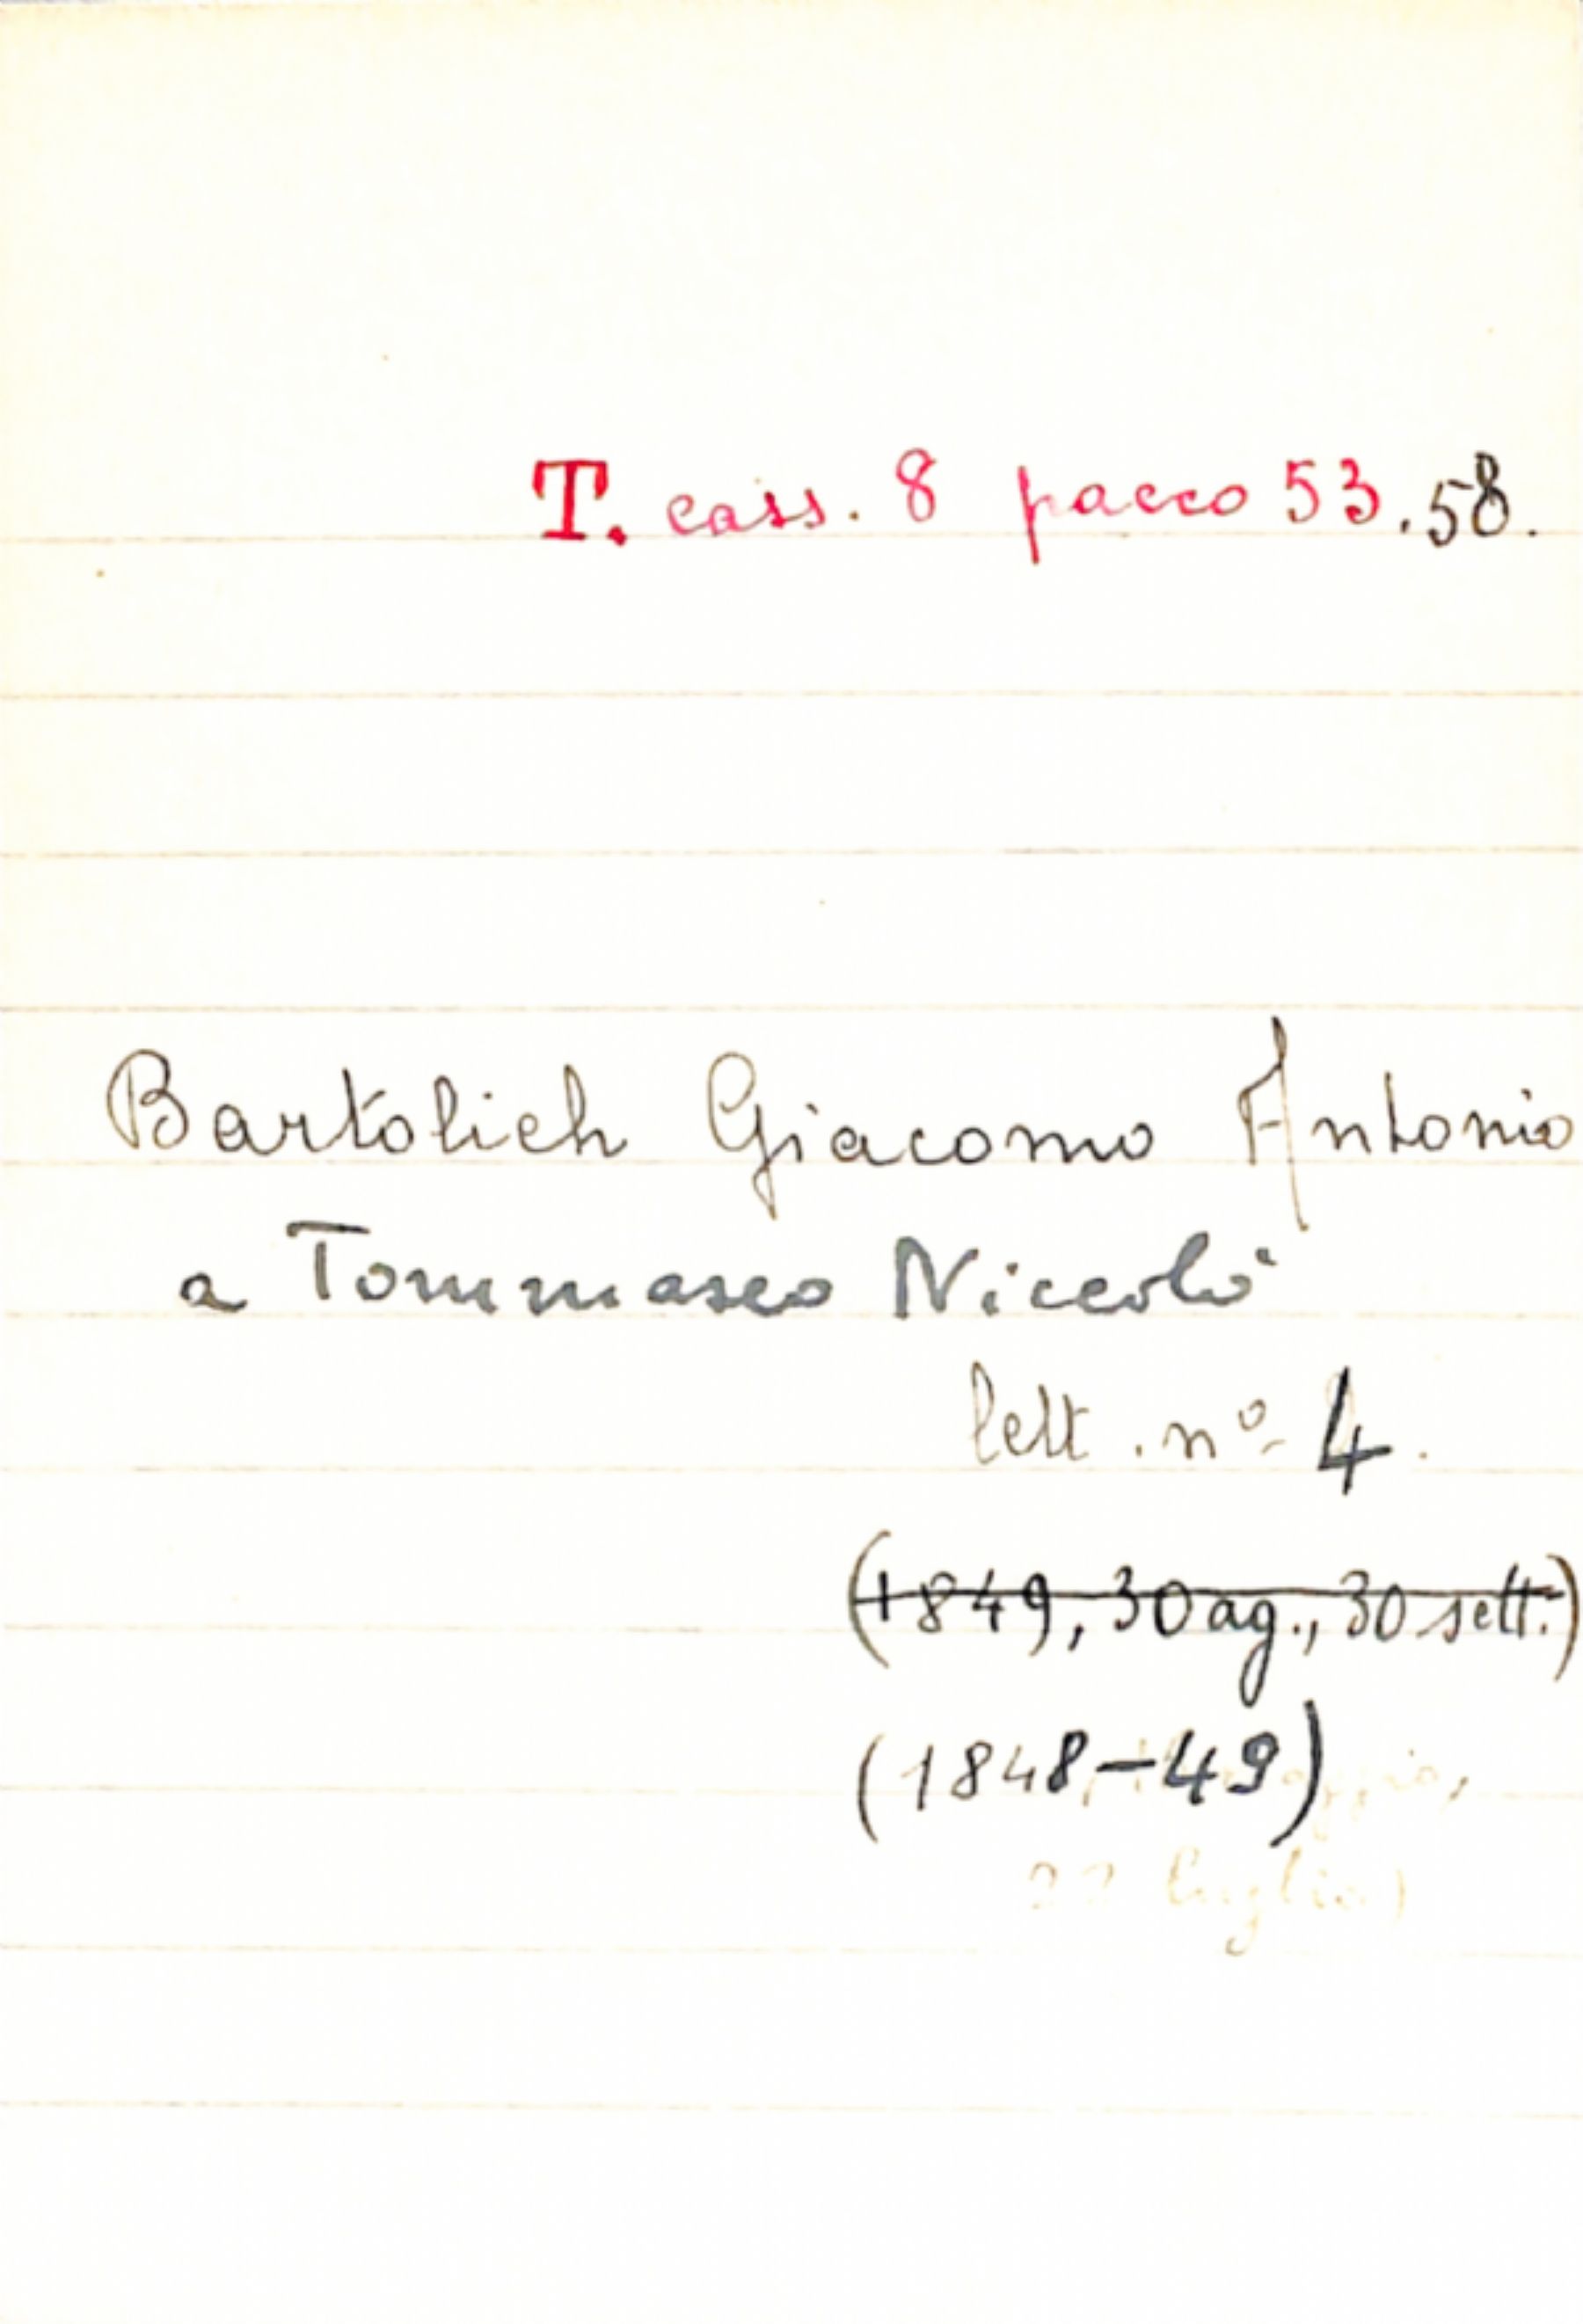 T. cass. 8 pacco 53.58.
Bartolich Giacomo Antonio
a Tommaseo Niccolò
lett. nº 4.
(1849, 30 ag., 30 sett.)
(1848-49)
luglio)